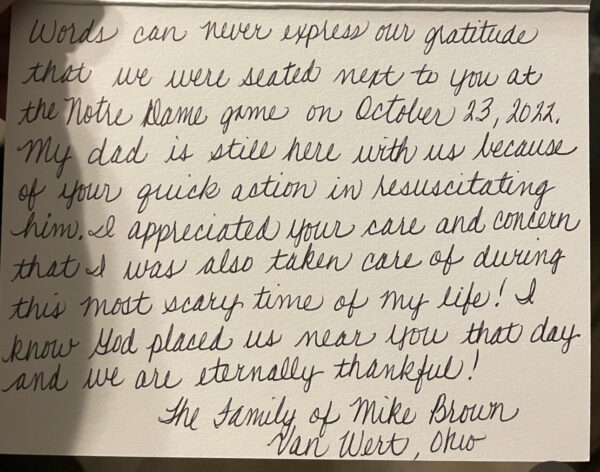 Words can never express our gratitude
that we were seated next to you at
the Notre Dame game on October 23, 2022.
My dad is still here with us because
of your quick action in resuscitating
him. I appreciated your care and concern
that I was also taken care of during
this most scary time of my life! I
know God placed us near you that day
and we are eternally thankful!
The Family of Mike Brown
Van Wert, Ohio